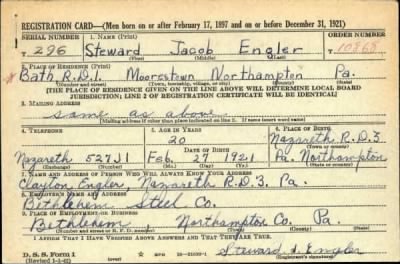 REGISTRATION CARD—(Men born on or after February 17, 1897 and on or before December 31, 1921)
SERIAL NUMBER 1. NAME (Print) ORDER NUMBER
T 296 Steward Jacob Engler 10868
(First) (Middle) (Last)
2. PLACE OF RESIDENCE (Print)
Bath R.D.1. Moorestown Northampton Pa.
(Number and street) (Town, township, village, or city) (County) (State)
[THE PLACE OF RESIDENCE GIVEN ON THE LINE ABOVE WILL DETERMINE LOCAL BOARD
JURISDICTION; LINE 2 OF REGISTRATION CERTIFICATE WILL BE IDENTICAL]
3. MAILING ADDRESS
same as above
[Mailing address if other than place indicated on line 2. If same insert word same]
4. TELEPHONE 5. AGE IN YEARS 6. PLACE OF BIRTH
20 Nazareth R.D.3
DATE OF BIRTH (Town or county)
Nazareth 527J1 Feb. 27 1921 Pa. Northampton
(Exchange) (Number) (Mo.) (Day) (Yr.) (State or country)
7. NAME AND ADDRESS OF PERSON WHO WILL ALWAYS KNOW YOUR ADDRESS
Clayton Engler, Nazareth R.D.3. Pa.
8. EMPLOYER'S NAME AND ADDRESS
Bethlehem Steel Co.
9. PLACE OF EMPLOYMENT OR BUSINESS
Bethlehem Northampton Co. Pa.
(Number and street or R. F. D. number) (Town) (County) (State)
I AFFIRM THAT I HAVE VERIFIED ABOVE ANSWERS AND THAT THEY ARE TRUE.
D. S. S. Form 1 Steward J. Engler
(Revised 1-1-42) (over) GPO 16—21630-1 (Registrant's signature)